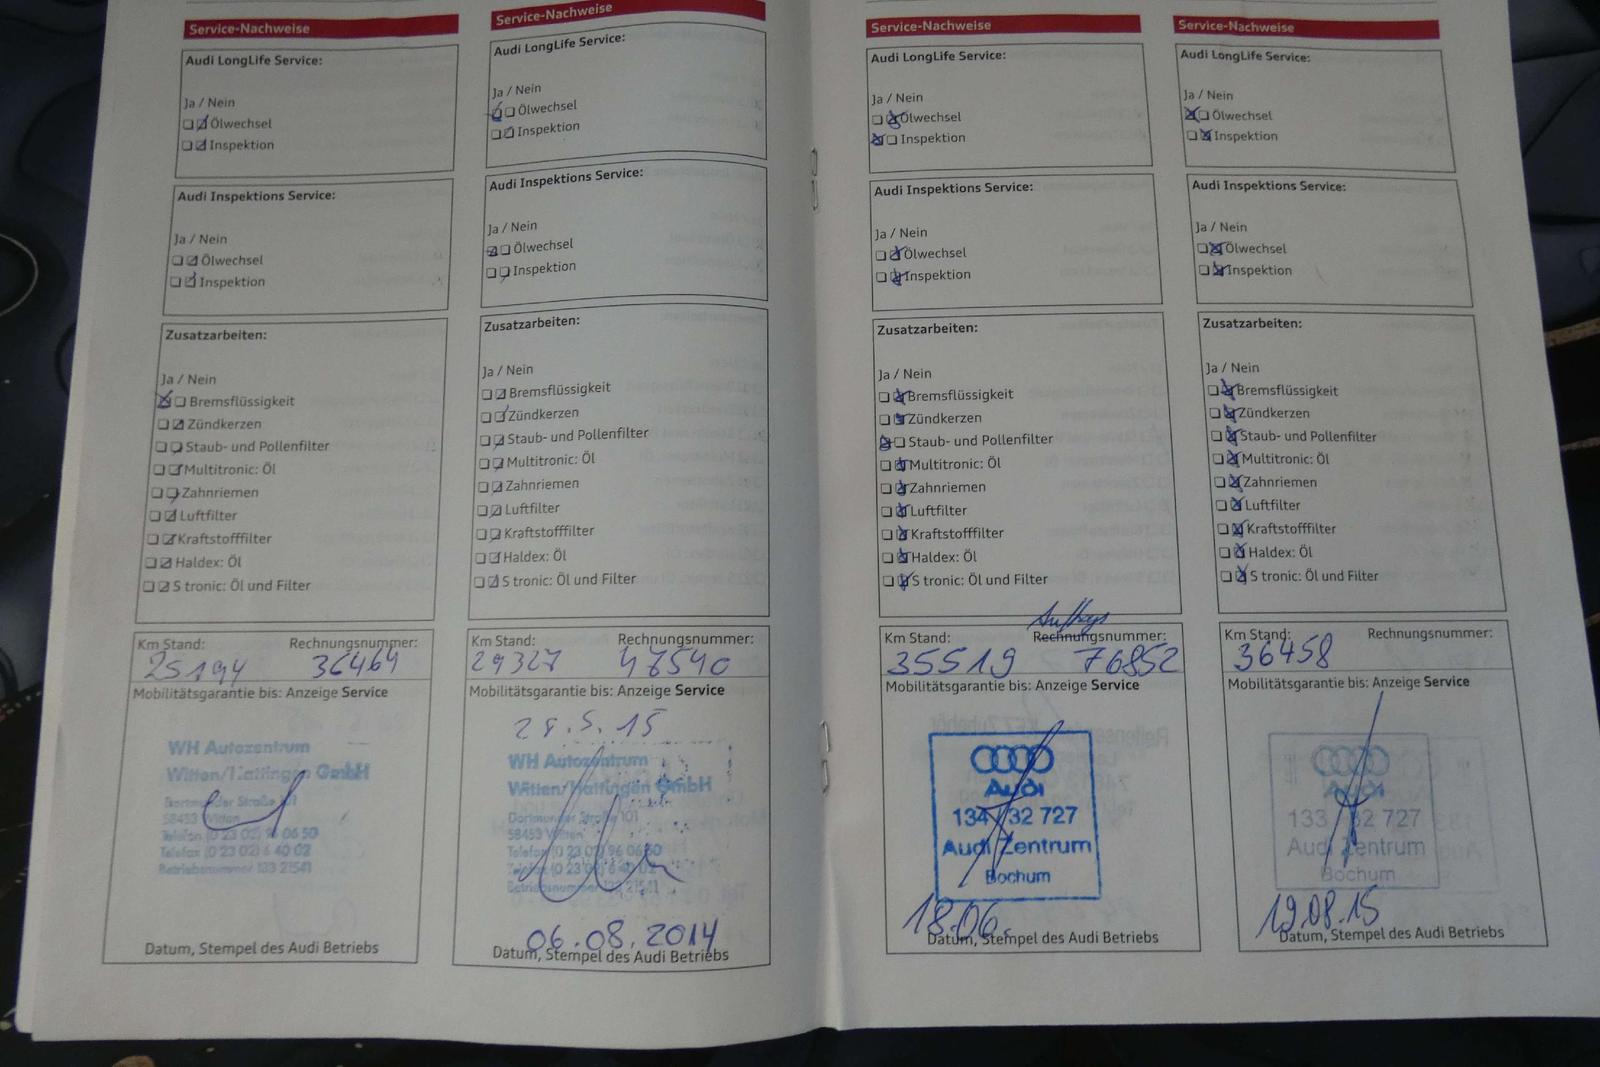 Service-Nachweise
Audi LongLife Service:
Ja / Nein
Ölwechsel
Inspektion
Audi Inspektions Service:
Ja / Nein
Ölwechsel
Inspektion
Zusatzarbeiten:
Ja / Nein
Bremsflüssigkeit
Zündkerzen
Staub- und Pollenfilter
Multitronic: Öl
Zahnriemen
Luftfilter
Kraftstofffilter
Haldex: Öl
S tronic: Öl und Filter
Km Stand: Rechnungsnummer:
25194 36464
Mobilitätsgarantie bis: Anzeige Service
WH Autozentrum
Witten/Hattingen GmbH
Dortmunder Straße 101
58453 Witten
Telefon (0 23 02) 96 06 50
Telefax (0 23 02) 6 40 02
Betriebsnummer 133 21541
Datum, Stempel des Audi Betriebs
Service-Nachweise
Audi LongLife Service:
Ja / Nein
Ölwechsel
Inspektion
Audi Inspektions Service:
Ja / Nein
Ölwechsel
Inspektion
Zusatzarbeiten:
Ja / Nein
Bremsflüssigkeit
Zündkerzen
Staub- und Pollenfilter
Multitronic: Öl
Zahnriemen
Luftfilter
Kraftstofffilter
Haldex: Öl
S tronic: Öl und Filter
Km Stand: Rechnungsnummer:
29327 47540
Mobilitätsgarantie bis: Anzeige Service
28.5.15
WH Autozentrum
Witten/Hattingen GmbH
Dortmunder Straße 101
58453 Witten
Telefon (0 23 02) 96 06 50
Telefax (0 23 02) 6 40 02
Betriebsnummer 133 21541
06.08.2014
Datum, Stempel des Audi Betriebs
Service-Nachweise
Audi LongLife Service:
Ja / Nein
Ölwechsel
Inspektion
Audi Inspektions Service:
Ja / Nein
Ölwechsel
Inspektion
Zusatzarbeiten:
Ja / Nein
Bremsflüssigkeit
Zündkerzen
Staub- und Pollenfilter
Multitronic: Öl
Zahnriemen
Luftfilter
Kraftstofffilter
Haldex: Öl
S tronic: Öl und Filter
Auftrags
Km Stand: Rechnungsnummer:
35519 76852
Mobilitätsgarantie bis: Anzeige Service
Audi
134 32 727
Audi Zentrum
Bochum
18.06.
Datum, Stempel des Audi Betriebs
Service-Nachweise
Audi LongLife Service:
Ja / Nein
Ölwechsel
Inspektion
Audi Inspektions Service:
Ja / Nein
Ölwechsel
Inspektion
Zusatzarbeiten:
Ja / Nein
Bremsflüssigkeit
Zündkerzen
Staub- und Pollenfilter
Multitronic: Öl
Zahnriemen
Luftfilter
Kraftstofffilter
Haldex: Öl
S tronic: Öl und Filter
Km Stand: Rechnungsnummer:
36458
Mobilitätsgarantie bis: Anzeige Service
Audi
133 32 727
Audi Zentrum
Bochum
19.08.15
Datum, Stempel des Audi Betriebs